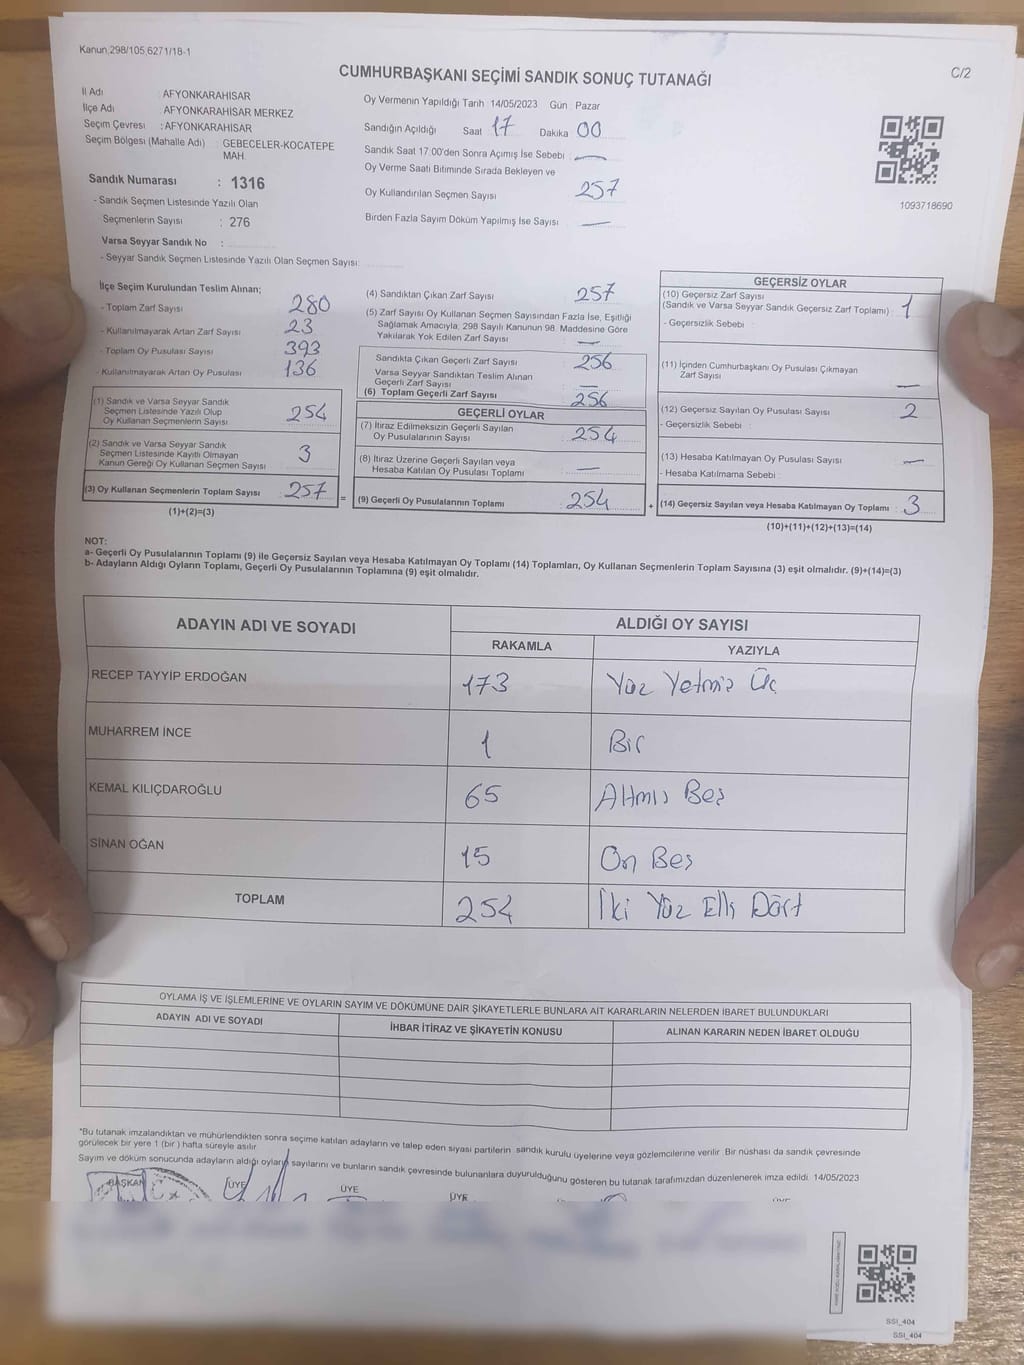 Kanun 298/105,6271/18-1
C/2
CUMHURBAŞKANI SEÇİMİ SANDIK SONUÇ TUTANAĞI
İl Adı : AFYONKARAHİSAR
İlçe Adı : AFYONKARAHİSAR MERKEZ
Seçim Çevresi : AFYONKARAHİSAR
Seçim Bölgesi (Mahalle Adı) : GEBECELER-KOCATEPE
MAH.
Sandık Numarası : 1316
- Sandık Seçmen Listesinde Yazılı Olan
Seçmenlerin Sayısı : 276
Varsa Seyyar Sandık No :
- Seyyar Sandık Seçmen Listesinde Yazılı Olan Seçmen Sayısı:
Oy Vermenin Yapıldığı Tarih 14/05/2023 Gün : Pazar
Sandığın Açıldığı Saat 17 Dakika 00
Sandık Saat 17:00'den Sonra Açımış İse Sebebi : —
Oy Verme Saati Bitiminde Sırada Bekleyen ve
Oy Kullandırılan Seçmen Sayısı 257
Birden Fazla Sayım Döküm Yapılmış İse Sayısı —
1093718690
İlçe Seçim Kurulundan Teslim Alınan;
- Toplam Zarf Sayısı : 280
- Kullanılmayarak Artan Zarf Sayısı : 23
- Toplam Oy Pusulası Sayısı : 393
- Kullanılmayarak Artan Oy Pusulası : 136
(1) Sandık ve Varsa Seyyar Sandık
Seçmen Listesinde Yazılı Olup
Oy Kullanan Seçmenlerin Sayısı : 254
(2) Sandık ve Varsa Seyyar Sandık
Seçmen Listesinde Kayıtlı Olmayan
Kanun Gereği Oy Kullanan Seçmen Sayısı : 3
(3) Oy Kullanan Seçmenlerin Toplam Sayısı : 257
(1)+(2)=(3)
=
(4) Sandıktan Çıkan Zarf Sayısı 257
(5) Zarf Sayısı Oy Kullanan Seçmen Sayısından Fazla İse, Eşitliği
Sağlamak Amacıyla; 298 Sayılı Kanunun 98. Maddesine Göre
Yakılarak Yok Edilen Zarf Sayısı : —
Sandıkta Çıkan Geçerli Zarf Sayısı : 256
Varsa Seyyar Sandıktan Teslim Alınan
Geçerli Zarf Sayısı : —
(6) Toplam Geçerli Zarf Sayısı : 256
GEÇERLİ OYLAR
(7) İtiraz Edilmeksizin Geçerli Sayılan
Oy Pusulalarının Sayısı : 254
(8) İtiraz Üzerine Geçerli Sayılan veya
Hesaba Katılan Oy Pusulası Toplamı : —
(9) Geçerli Oy Pusulalarının Toplamı : 254
+
GEÇERSİZ OYLAR
(10) Geçersiz Zarf Sayısı
(Sandık ve Varsa Seyyar Sandık Geçersiz Zarf Toplamı) : 1
- Geçersizlik Sebebi :
(11) İçinden Cumhurbaşkanı Oy Pusulası Çıkmayan
Zarf Sayısı : —
(12) Geçersiz Sayılan Oy Pusulası Sayısı : 2
- Geçersizlik Sebebi :
(13) Hesaba Katılmayan Oy Pusulası Sayısı : —
- Hesaba Katılmama Sebebi :
(14) Geçersiz Sayılan veya Hesaba Katılmayan Oy Toplamı : 3
(10)+(11)+(12)+(13)=(14)
NOT:
a- Geçerli Oy Pusulalarının Toplamı (9) ile Geçersiz Sayılan veya Hesaba Katılmayan Oy Toplamı (14) Toplamları, Oy Kullanan Seçmenlerin Toplam Sayısına (3) eşit olmalıdır. (9)+(14)=(3)
b- Adayların Aldığı Oyların Toplamı, Geçerli Oy Pusulalarının Toplamına (9) eşit olmalıdır.
ADAYIN ADI VE SOYADI ALDIĞI OY SAYISI
RAKAMLA YAZIYLA
RECEP TAYYİP ERDOĞAN 173 Yüz Yetmiş Üç
MUHARREM İNCE 1 Bir
KEMAL KILIÇDAROĞLU 65 Altmış Beş
SİNAN OĞAN 15 On Beş
TOPLAM 254 İki Yüz Elli Dört
OYLAMA İŞ VE İŞLEMLERİNE VE OYLARIN SAYIM VE DÖKÜMÜNE DAİR ŞİKAYETLERLE BUNLARA AİT KARARLARIN NELERDEN İBARET BULUNDUKLARI
ADAYIN ADI VE SOYADI İHBAR İTİRAZ VE ŞİKAYETİN KONUSU ALINAN KARARIN NEDEN İBARET OLDUĞU
*Bu tutanak imzalandıktan ve mühürlendikten sonra seçime katılan adayların ve talep eden siyasi partilerin sandık kurulu üyelerine veya gözlemcilerine verilir. Bir nüshası da sandık çevresinde
görülecek bir yere 1 (bir ) hafta süreyle asılır.
Sayım ve döküm sonucunda adayların aldığı oyların sayılarını ve bunların sandık çevresinde bulunanlara duyurulduğunu gösteren bu tutanak tarafımızdan düzenlenerek imza edildi. 14/05/2023
BAŞKAN ÜYE ÜYE ÜYE
SSI_404
SSI_404